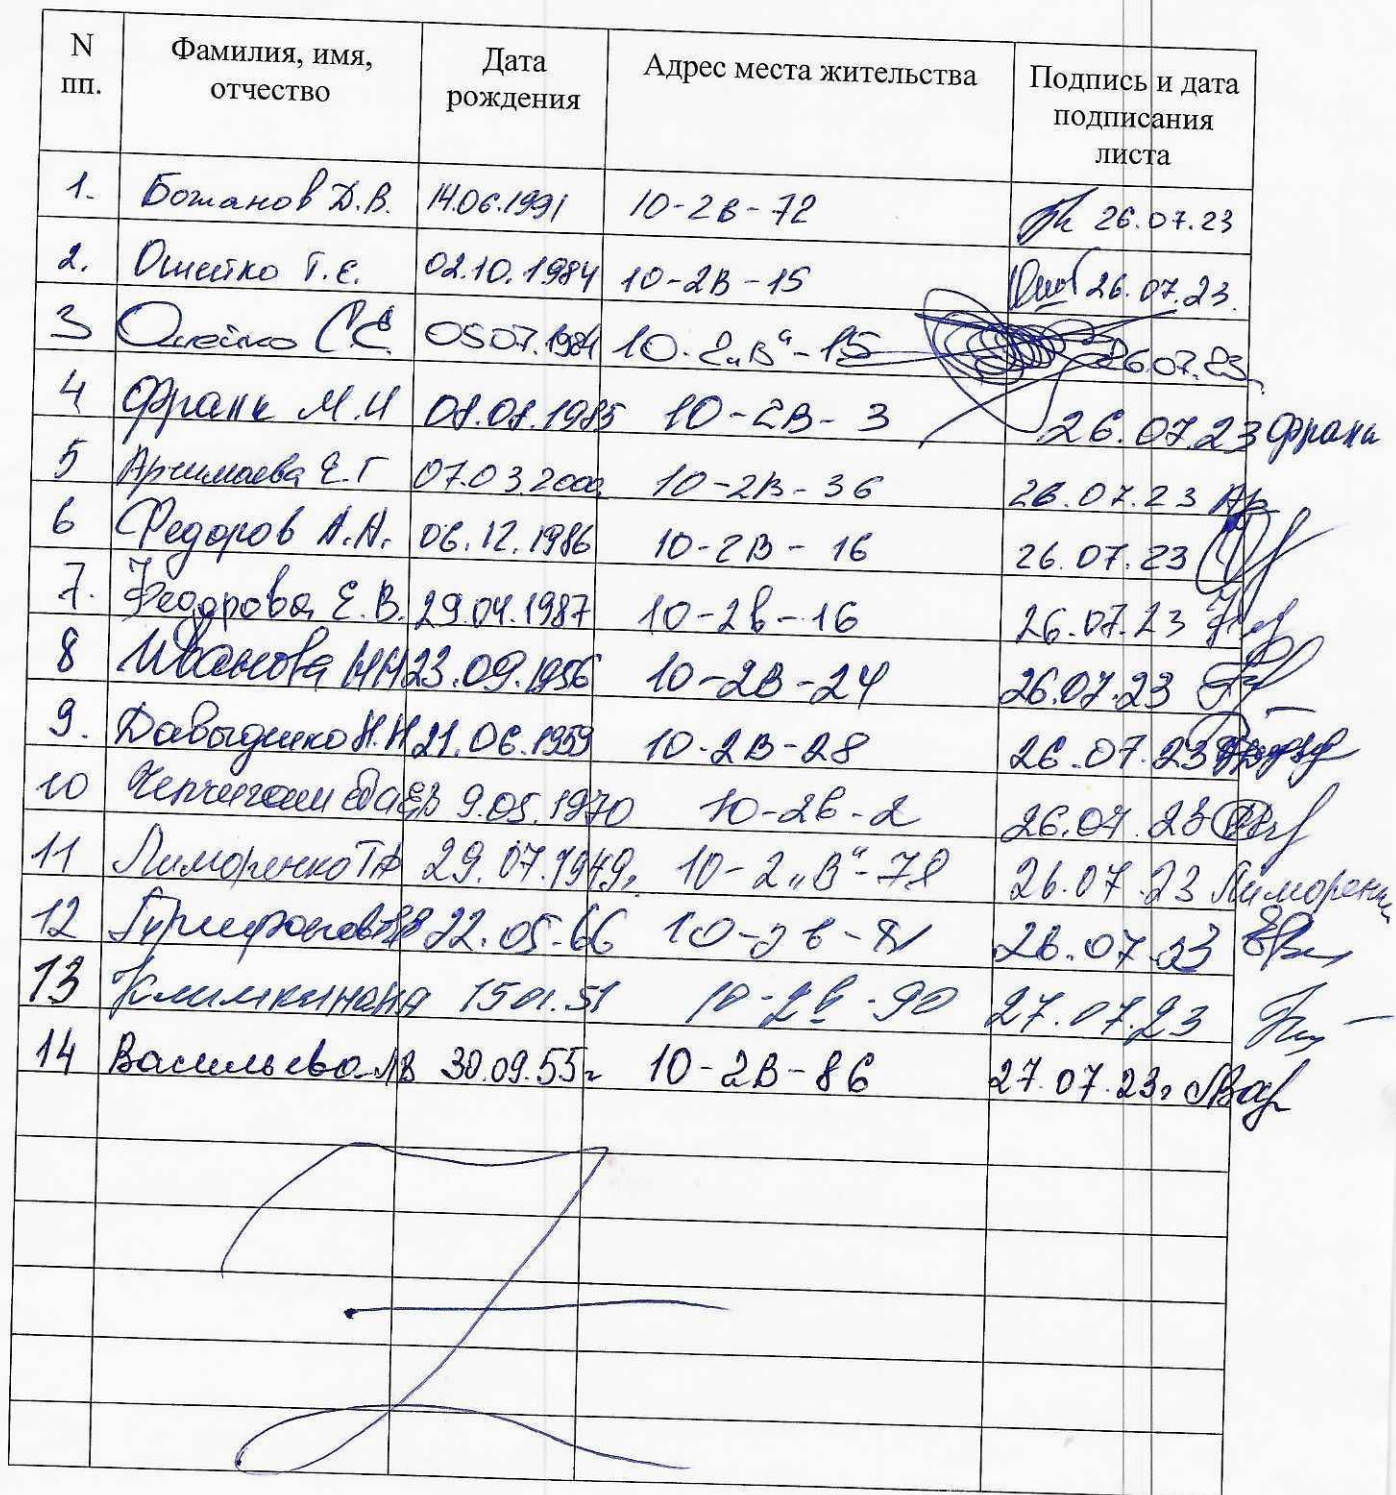 N пп. Фамилия, имя, отчество Дата рождения Адрес места жительства Подпись и дата подписания листа
1. Божанов Д.В. 14.06.1991 10-2В-72 26.07.23
2. Ошейко Т.Е. 02.10.1984 10-2В-15 26.07.23.
3 Ошейко С.Е. 05.07.1984 10-2„В“-15 26.07.23
4 Франк М.И 08.08.1985 10-2В-3 26.07.23 Франк
5 Е.Г 07.03.2000 10-2В-36 26.07.23
6 Федоров А.А. 06.12.1986 10-2В-16 26.07.23
7. Федорова Е.В. 29.04.1987 10-2в-16 26.07.23
8 Иванова НН 23.09.1956 10-2В-24 26.07.23
9. Давыденко Н.Н 21.06.1959 10-2В-28 26.07.23
10 9.05.1970 10-2в-2 26.07.23
11 Лиморенко 29.07.1949. 10-2„В“-78 26.07.23 Лиморенко
12 22.05-66 10-2в- 26.07.23
13 15.01.51 10-2в-90 27.07.23
14 Васильева ЛВ 30.09.55г 10-2В-86 27.07.23г